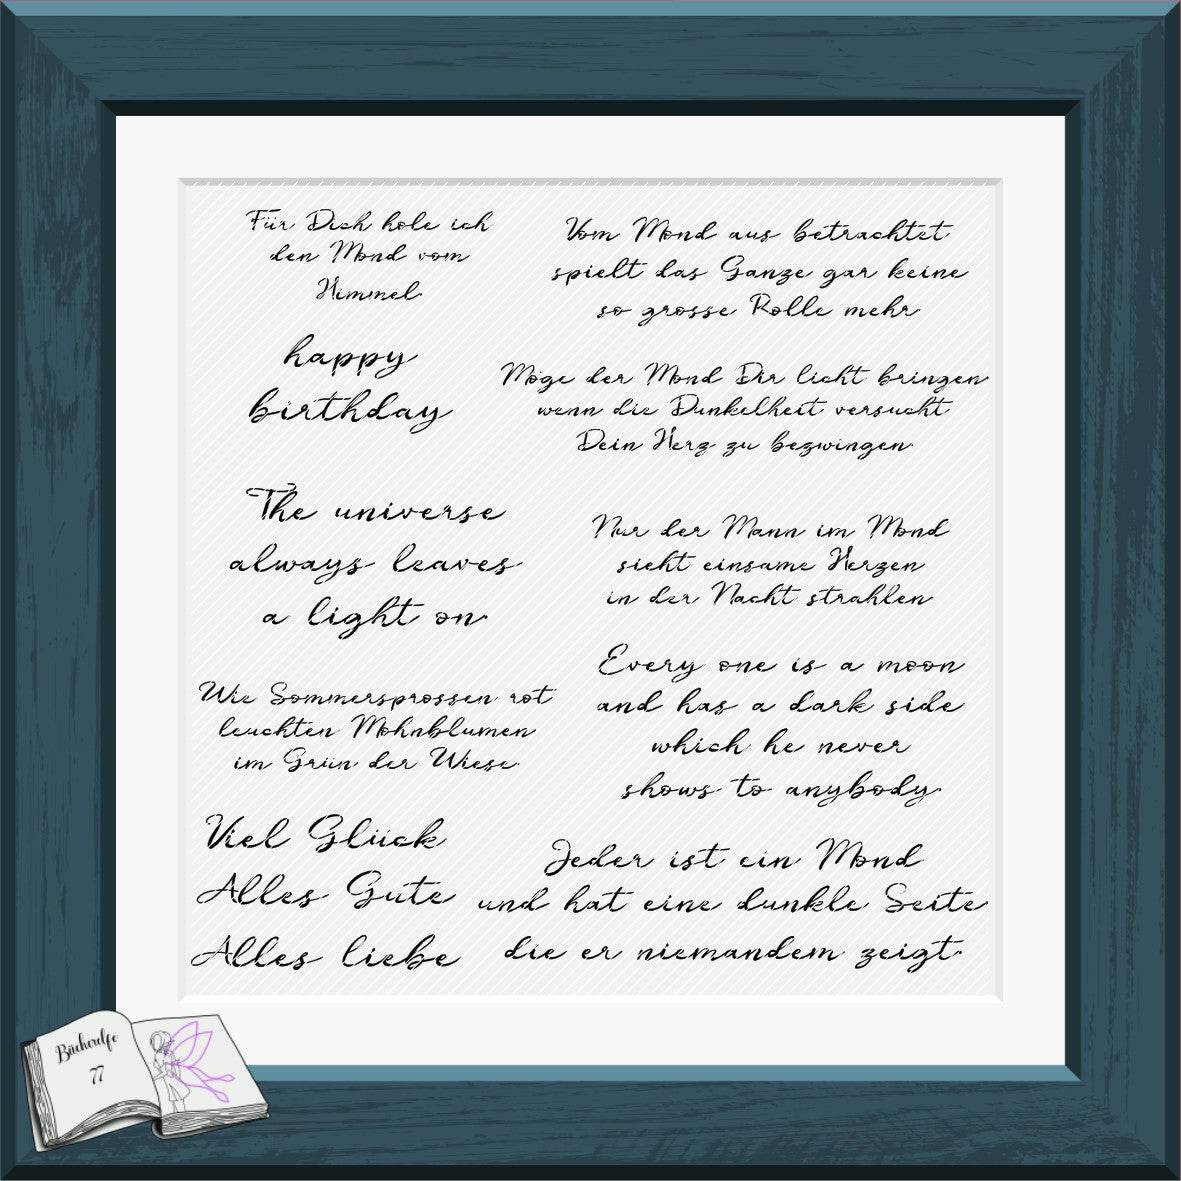 Für Dich hole ich
den Mond vom
Himmel.
happy
birthday
The universe
always leaves
a light on.
Wie Sommersprossen rot
leuchten Mohnblumen
im Grün der Wiese.
Viel Glück
Alles Gute
Alles liebe
Vom Mond aus betrachtet
spielt das Ganze gar keine
so grosse Rolle mehr.
Möge der Mond Dir licht bringen
wenn die Dunkelheit versucht
Dein Herz zu bezwingen.
Nur der Mann im Mond
sieht einsame Herzen
in der Nacht strahlen.
Every one is a moon
and has a dark side
which he never
shows to anybody.
Jeder ist ein Mond
und hat eine dunkle Seite
die er niemandem zeigt.
Bücherelfe
77